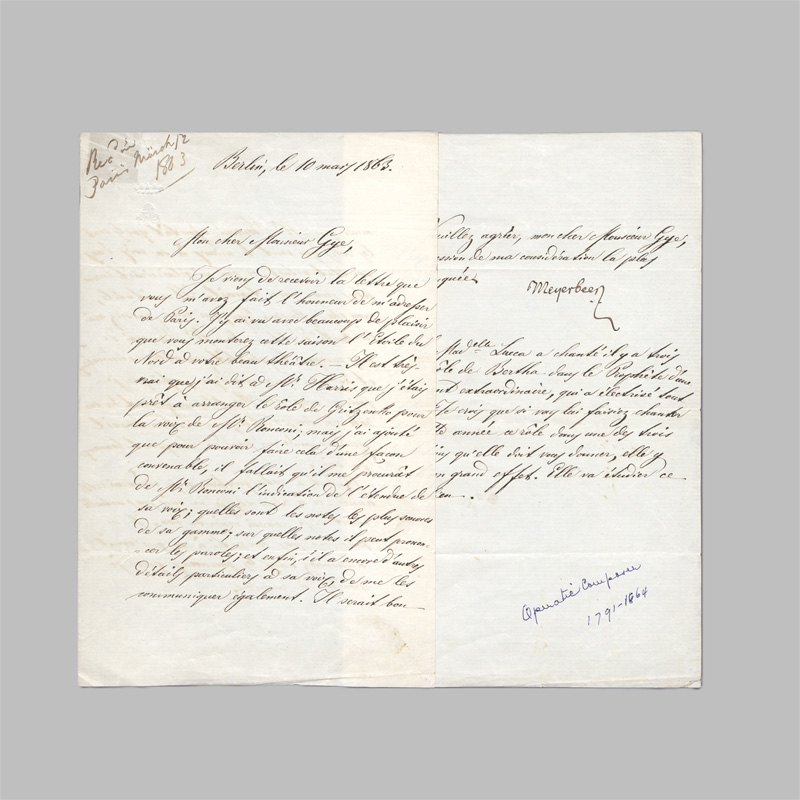 Rec'd in
Paris March 12
1863
Berlin, le 10 mars 1863.
Mon cher Monsieur Gye,
Je viens de recevoir la lettre que
vous m'avez fait l'honneur de m'adresser
de Paris. J'y ai vu avec beaucoup de plaisir
que vous monterez cette saison l'Etoile du
Nord à votre beau théâtre. — Il est très-
vrai que j'ai dit à Mr. Harris que j'étais
prêt à arranger le rôle de Gritzenko pour
la voix de Mr. Ronconi; mais j'ai ajouté
que pour pouvoir faire cela d'une façon
convenable, il fallait qu'il me procurât
de Mr. Ronconi l'indication de l'étendue de
sa voix; quelles sont les notes les plus sonores
de sa gamme; sur quelles notes il peut pronon-
cer les paroles; et enfin, s'il a encore d'autres
détails particuliers à sa voix, de me les
communiquer également. Il serait bon
euillez agréer, mon cher Monsieur Gye,
ession de ma considération la plus
guée.
Meyerbeer
Madella Lucca a chanté il y a trois
ôle de Bertha dans le Prophète d'une
nt extraordinaire, qui a électrisé tout
Je crois que si vous lui faisiez chanter
te année ce rôle dans une des trois
qu'elle doit vous donner, elle y
n grand effet. Elle va étudier ce
en.
Operatic Composer
1791-1864